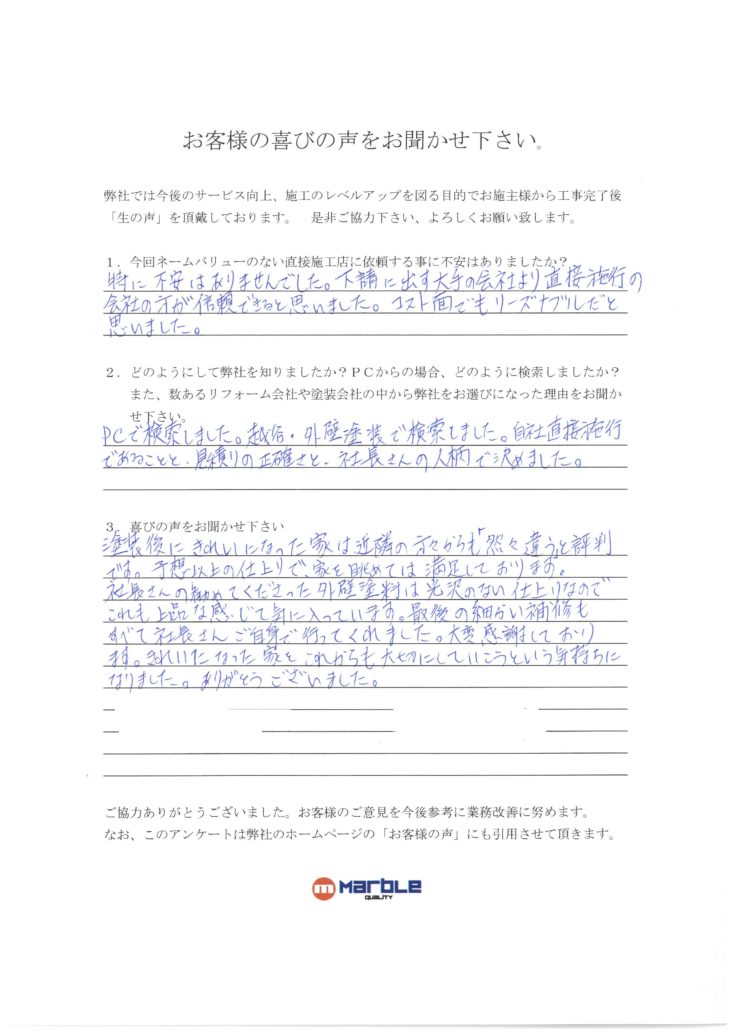 お客様の喜びの声をお聞かせ下さい。
弊社では今後のサービス向上、施工のレベルアップを図る目的でお施主様から工事完了後
「生の声」を頂戴しております。　是非ご協力下さい、よろしくお願い致します。
１．今回ネームバリューのない直接施工店に依頼する事に不安はありましたか？
特に不安はありませんでした。下請に出す大手の会社より直接施行の
会社の方が信頼できると思いました。コスト面でもリーズナブルだと
思いました。
２．どのようにして弊社を知りましたか？ＰＣからの場合、どのように検索しましたか？
また、数あるリフォーム会社や塗装会社の中から弊社をお選びになった理由をお聞か
せ下さい。
PCで検索しました。越谷・外壁塗装で検索しました。自社直接施行
であることと、見積りの正確さと、社長さんの人柄で決めました。
３．喜びの声をお聞かせ下さい
塗装後にきれいになった家は近隣の方々からも「然々違う」と評判
です。予想以上の仕上りで、家を眺めては満足しております。
社長さんの勧めてくださった外壁塗料は光沢のない仕上りなので
これも上品な感じで気に入っています。最後の細かい補修も
すべて社長さんご自身で行ってくれました。大変感謝しており
ます。きれいになった家をこれからも大切にしていこうという気持ちに
なりました。ありがとうございました。
ご協力ありがとうございました。お客様のご意見を今後参考に業務改善に努めます。
なお、このアンケートは弊社のホームページの「お客様の声」にも引用させて頂きます。
m MarBLe
QUALITY